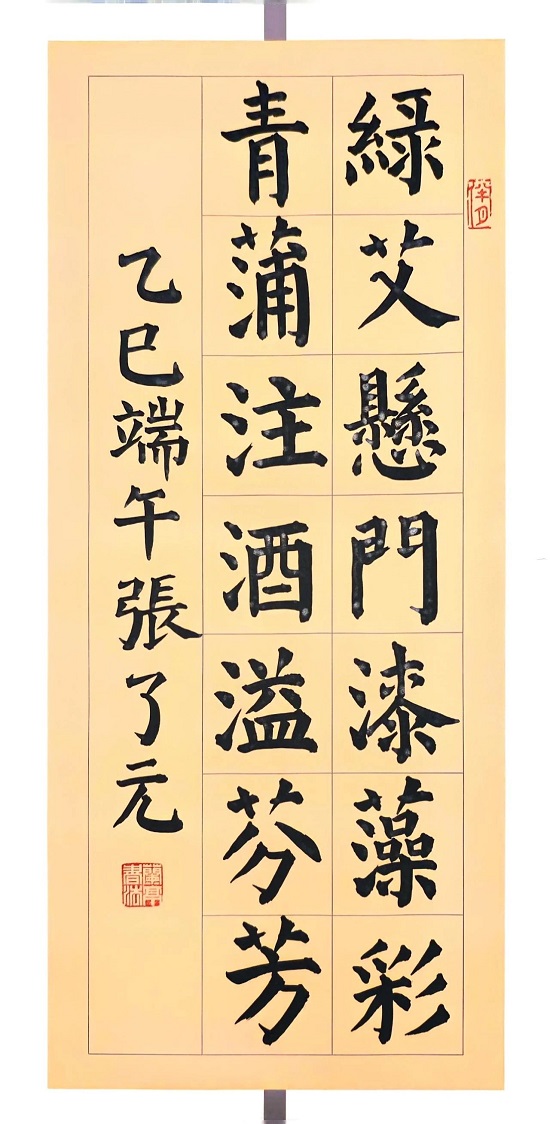 綠艾懸門漆藻彩
青蒲注酒溢芬芳
乙巳端午張了元
蘭亭書法